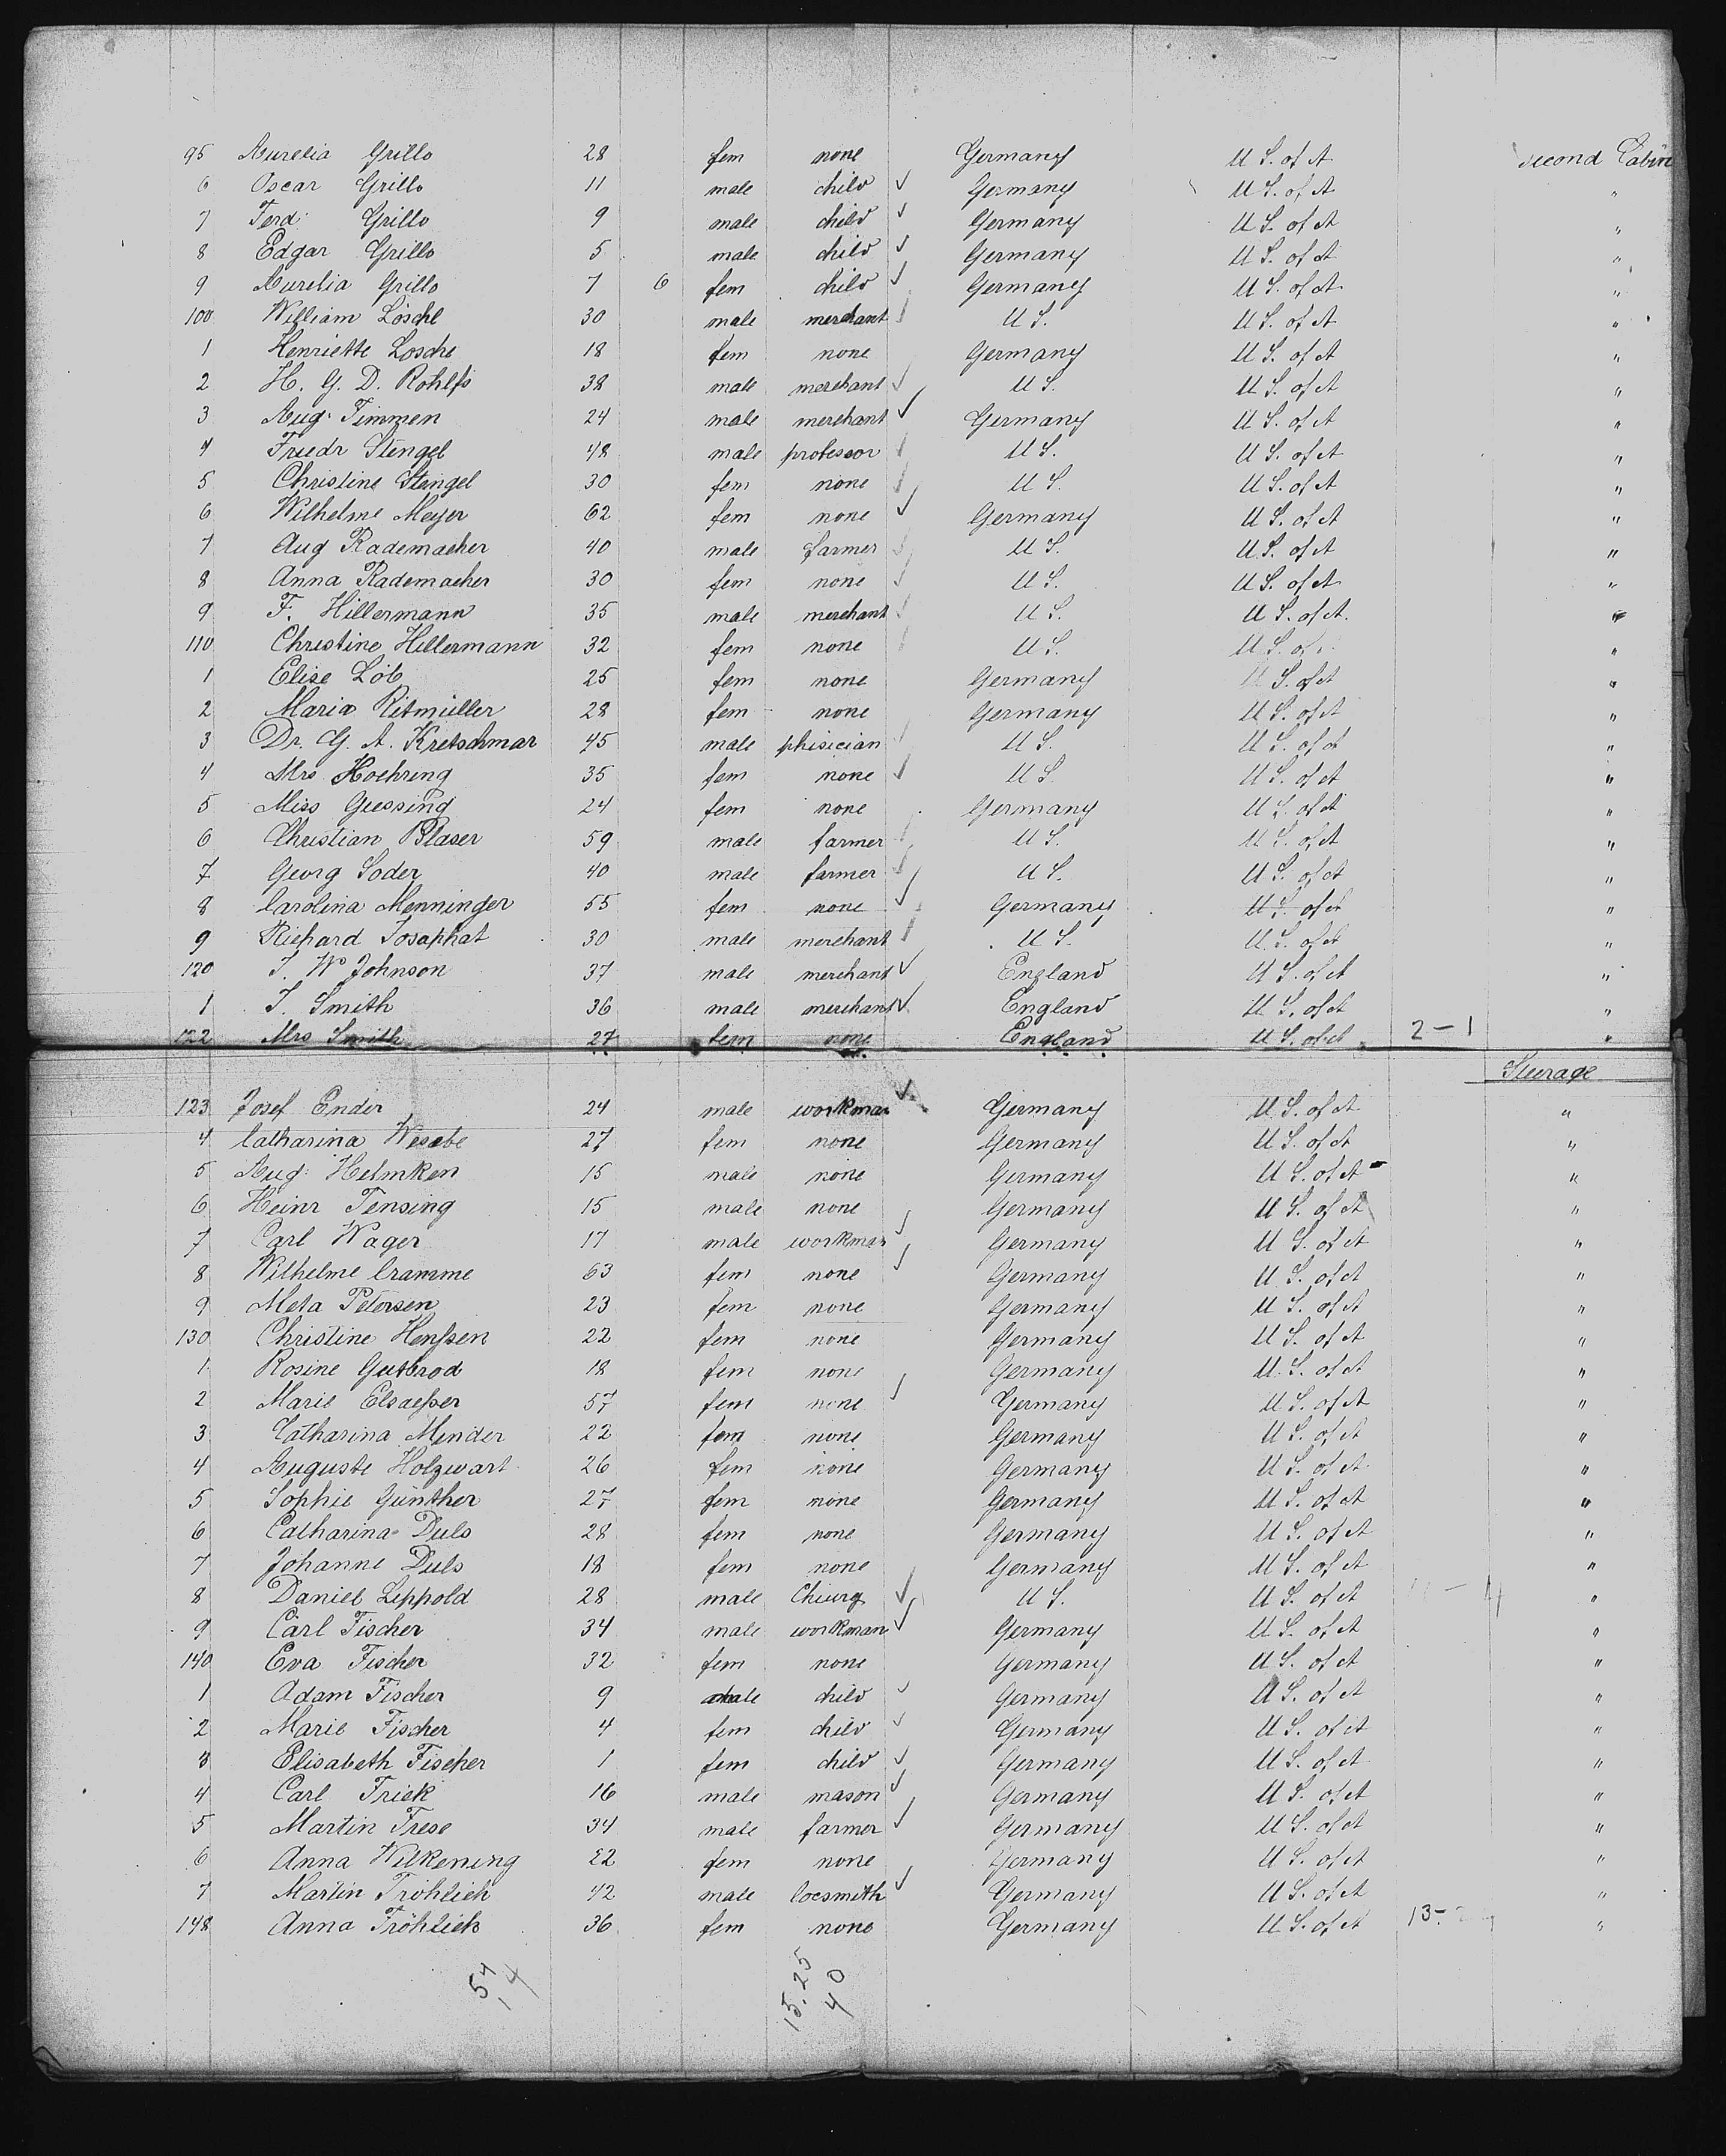 95 Aurelia Grillo 28 fem none Germany U S. of A second Cabin
6 Oscar Grillo 11 male child ✓ Germany U S. of A "
7 Ferd. Grillo 9 male child ✓ Germany U S. of A "
8 Edgar Grillo 5 male child ✓ Germany U S. of A "
9 Aurelia Grillo 7 6 fem child ✓ Germany U S. of A "
100 William Lösche 30 male merchant U S. U S. of A "
1 Henriette Losche 18 fem none Germany U S. of A "
2 H. G. D. Rohlfs 38 male merchant ✓ U S. U S. of A "
3 Aug. Timmen 24 male merchant ✓ Germany U S. of A "
4 Friedr Stengel 48 male professor U S. U S. of A "
5 Christine Stengel 30 fem none U S. U S. of A "
6 Wilhelme Meyer 62 fem none ✓ Germany U S. of A "
7 Aug Rademacher 40 male farmer U S. U S. of A "
8 Anna Rademacher 30 fem none ✓ U S. U S. of A "
9 F. Hillermann 35 male merchant U S. U S. of A. "
110 Christine Hillermann 32 fem none U S. U S. of "
1 Elise Löb 25 fem none Germany U S. of A "
2 Maria Ritmüller 28 fem none Germany U S. of A "
3 Dr. G. A. Kretschmar 45 male phisician U S. U S. of A "
4 Mrs Hoehring 35 fem none ✓ U S. U S. of A "
5 Miss Giessing 24 fem none Germany U S. of A "
6 Christian Blaser 59 male farmer U S. U S. of A "
7 Georg Soder 40 male farmer ✓ U S. U S. of A "
8 Carolina Menninger 55 fem none ✓ Germany U S. of A "
9 Richard Josaphat 30 male merchant U S. U S. of A "
120 J. W Johnson 37 male merchant ✓ England U S. of A "
1 J. Smith 36 male merchant ✓ England U S. of A "
122 Mrs Smith 27 fem none England U S. of A 2-1 "
Steerage
123 Josef Ender 24 male workman ✓ Germany U S. of A "
4 Catharina Wesebe 27 fem none Germany U S. of A "
5 Aug. Helmken 15 male none Germany U S. of A "
6 Heinr Tensing 15 male none Germany U S. of A "
7 Carl Wager 17 male workman ✓ Germany U S. of A "
8 Wilhelme Cramme 63 fem none ✓ Germany U S. of A "
9 Meta Petersen 23 fem none Germany U S. of A "
130 Christine Henssen 22 fem none Germany U S. of A "
1 Rosine Gutbrod 18 fem none Germany U S. of A "
2 Marie Elsaesser 57 fem none ✓ Germany U S. of A "
3 Catharina Minder 22 fem none Germany U S. of A "
4 Auguste Holzwart 26 fem none Germany U S. of A "
5 Sophie Günther 27 fem none Germany U S. of A "
6 Catharina Duls 28 fem none Germany U S. of A "
7 Johanne Duls 18 fem none Germany U S. of A "
8 Daniel Lippold 28 male Chiurg ✓ U S. U S. of A "
9 Carl Fischer 34 male workman ✓ Germany U S. of A "
140 Eva Fischer 32 fem none Germany U S. of A "
1 Adam Fischer 9 male child ✓ Germany U S. of A "
2 Marie Fischer 4 fem child ✓ Germany U S. of A "
3 Elisabeth Fischer 1 fem child ✓ Germany U S. of A "
4 Carl Frick 16 male mason ✓ Germany U S. of A "
5 Martin Frese 34 male farmer ✓ Germany U S. of A "
6 Anna Wilkening 22 fem none Germany U S. of A "
7 Martin Fröhlich 42 male locsmith ✓ Germany U S. of A "
148 Anna Fröhlich 36 fem none Germany U S. of A 13- "
54
14
15.25
40